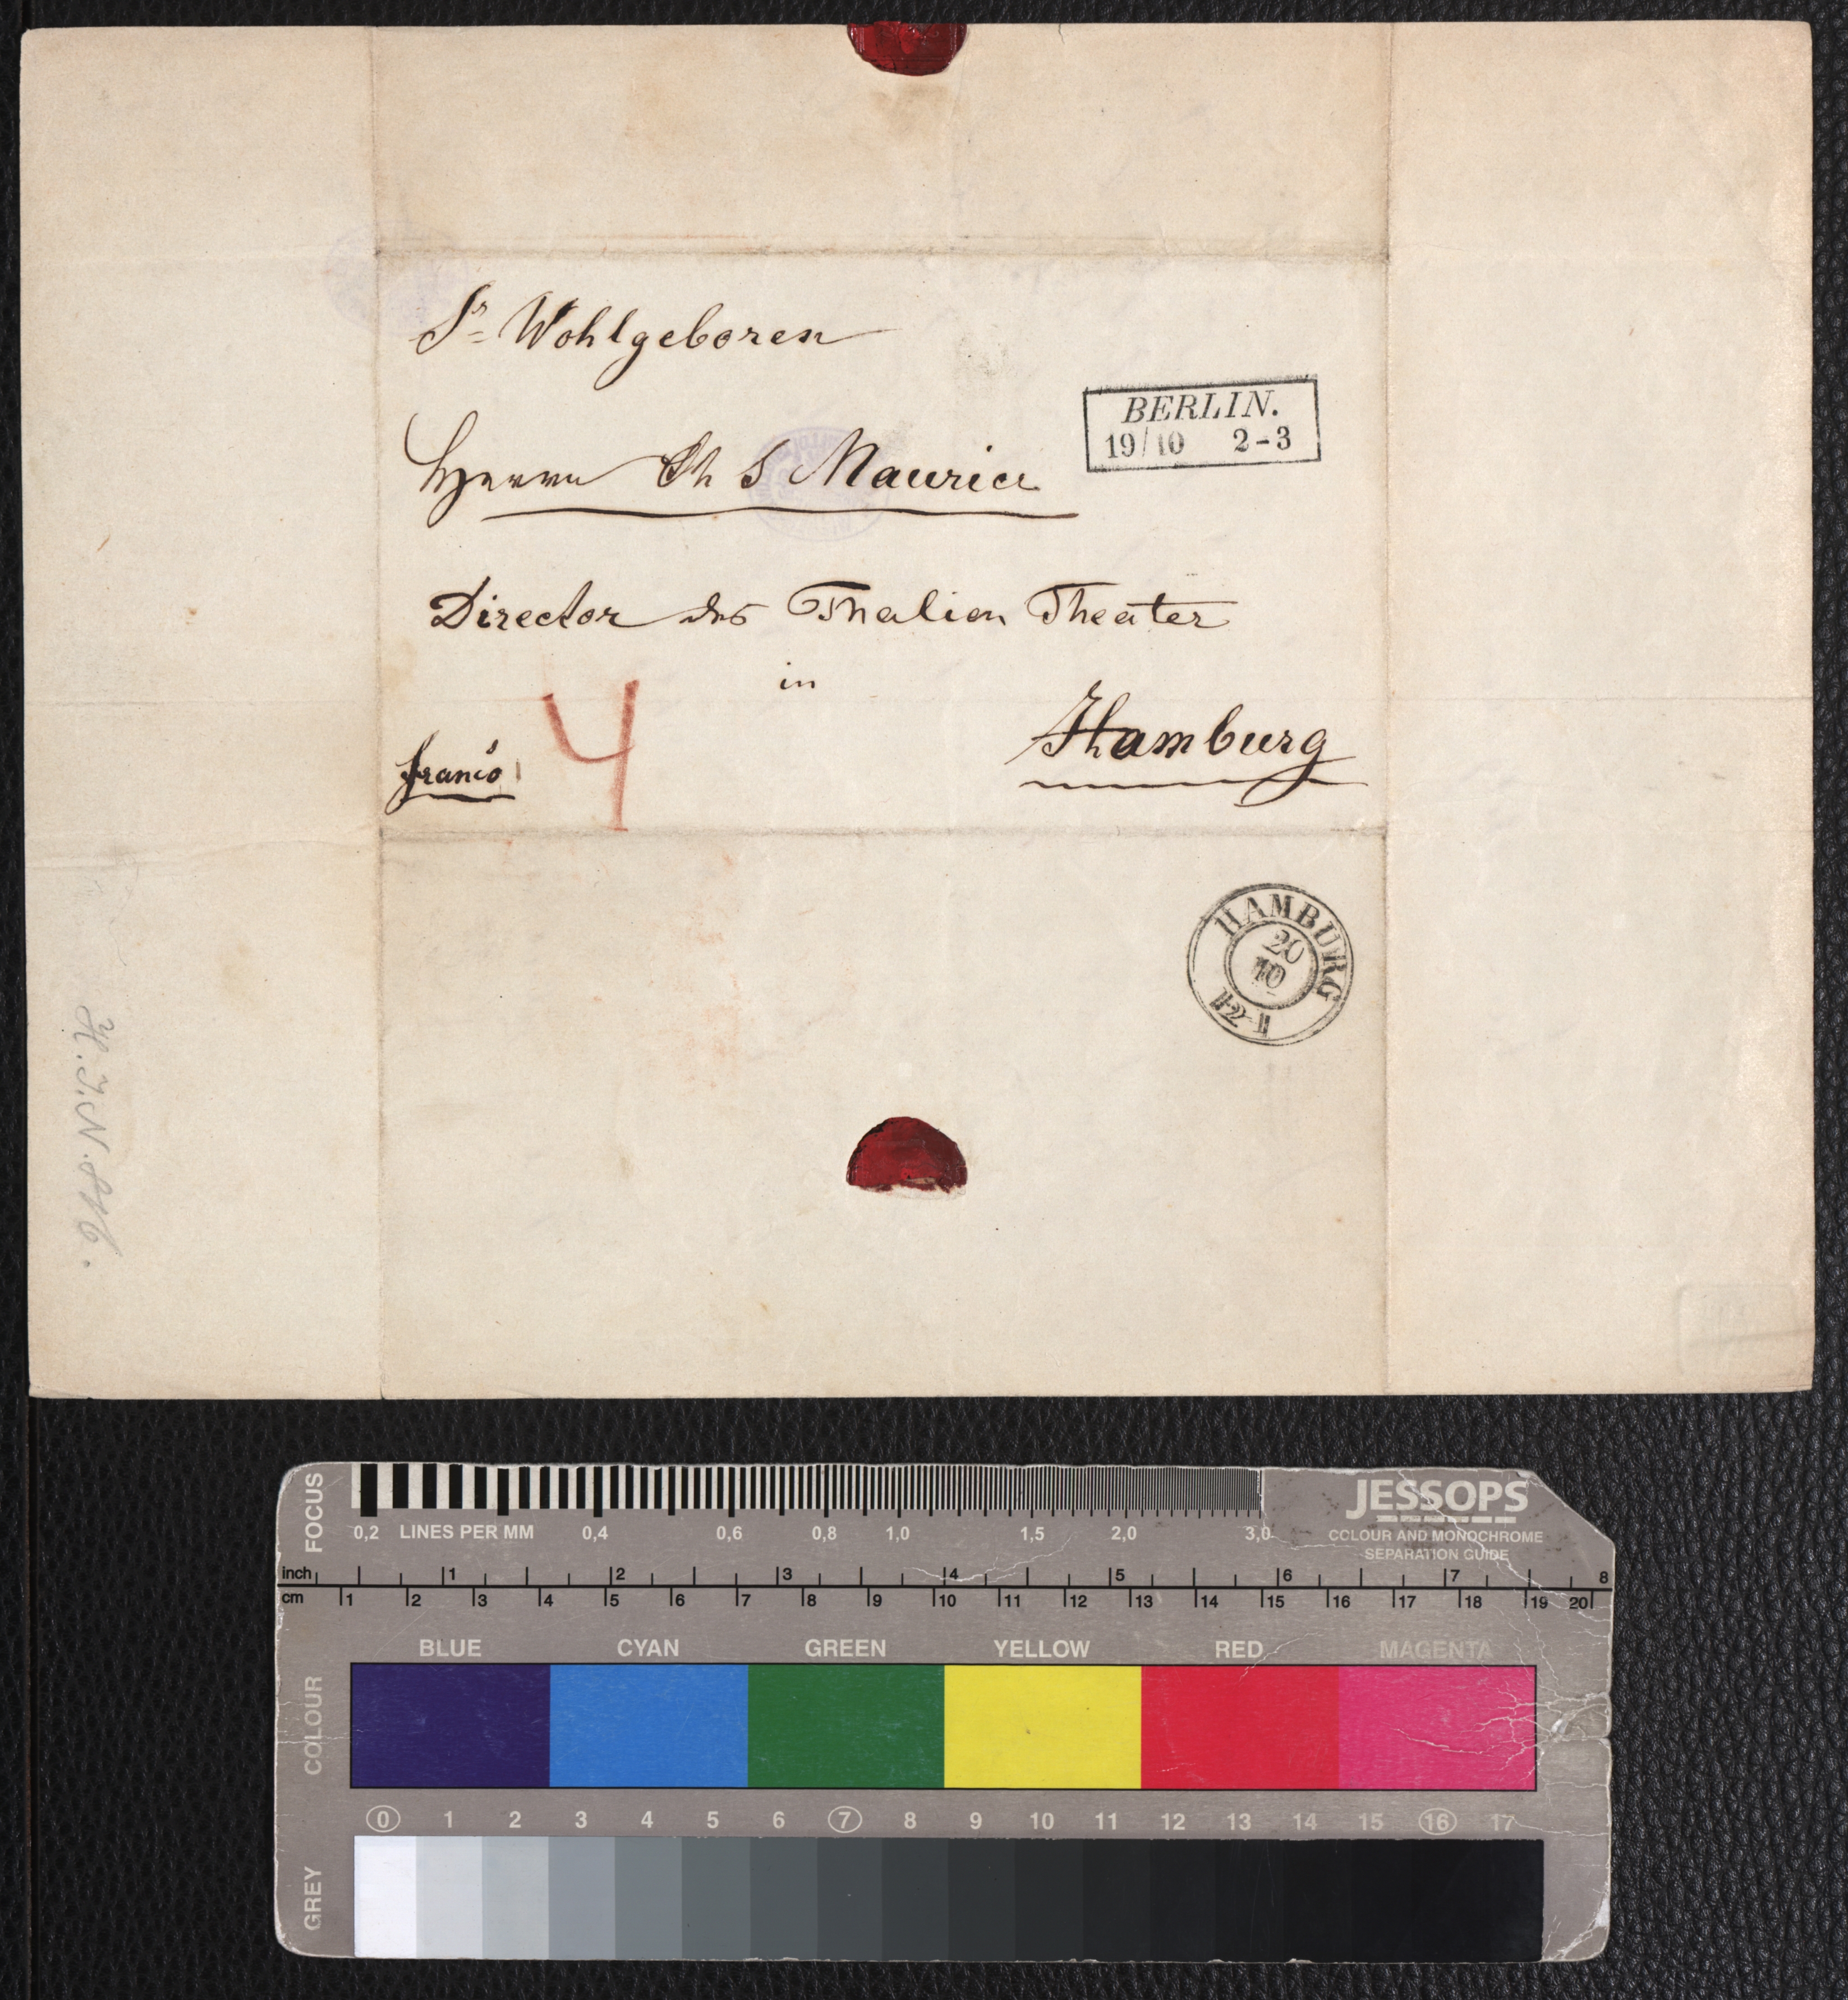 Sr Wohlgeboren
Herrn Ch S Maurice
BERLIN.
19/10 2-3
Director des Thalien Theater
in
Hamburg
franco
4
HAMBURG
20
10
12-1
H.I.N.
FOCUS
0,2 LINES PER MM 0,4 0,6 0,8 1,0 1,5 2,0 3,0
JESSOPS
COLOUR AND MONOCHROME
SEPARATION GUIDE
inch 1 2 3 4 5 6 7 8
cm 1 2 3 4 5 6 7 8 9 10 11 12 13 14 15 16 17 18 19 20
BLUE CYAN GREEN YELLOW RED MAGENTA
COLOUR
0 1 2 3 4 5 6 7 8 9 10 11 12 13 14 15 16 17
GREY